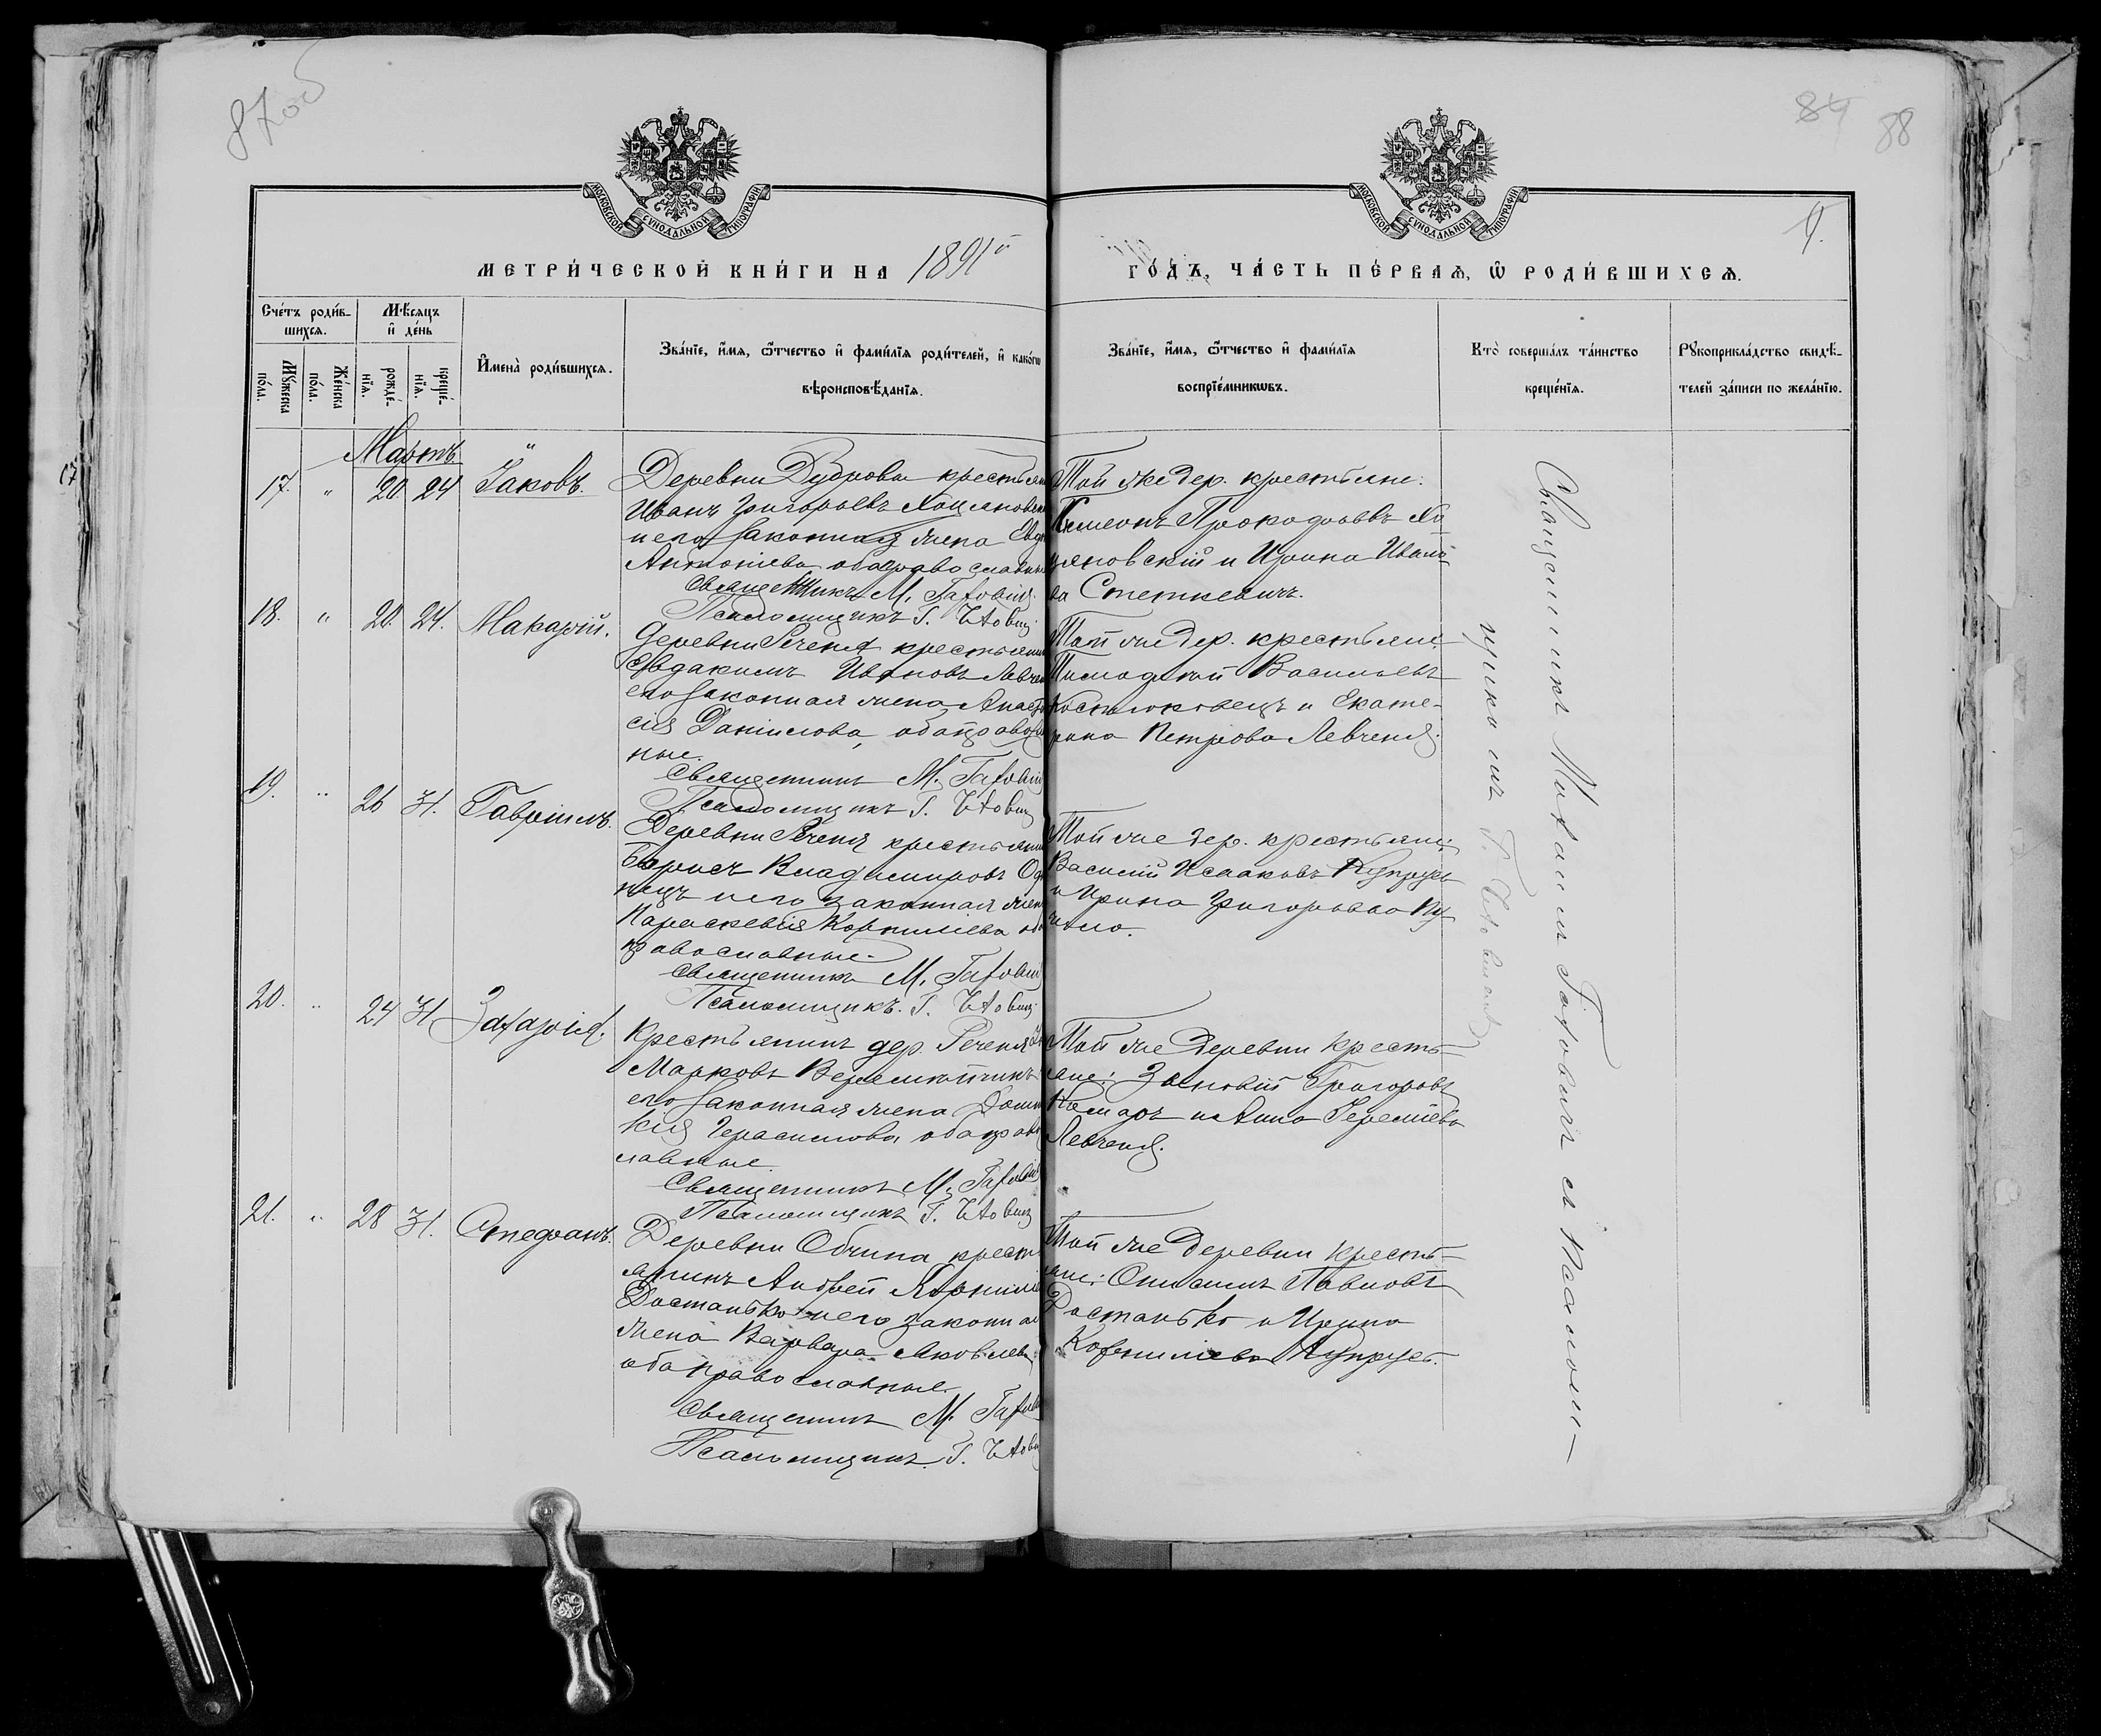 87об
84 88
МОСКОВСКОЙ СѴНОДАЛЬНОЙ ТИПОГРАФІИ
МОСКОВСКОЙ СѴНОДАЛЬНОЙ ТИПОГРАФІИ
9.
МЕТРИ́ЧЕСКОЙ КНИ́ГИ НА 1891й
ГО́ДЪ, ЧА́СТЬ ПЕ́РВАѦ, Ѡ РОДИ́ВШИХСѦ.
Сче́тъ роди́в-
шихсѧ.
Мꙋжеска по́ла.
Же́нска по́ла.
Мѣ́сѧцъ
и҆ де́нь
рожде́-
нїѧ.
креще́-
нїѧ.
И҆мена̀ роди́вшихсѧ.
Зва́нїе, и҆́мѧ, ѻ҆́тчество и҆ фами́лїѧ роди́телей, и҆ како́гѡ
вѣроисповѣ́данїѧ.
Зва́нїе, и҆́мѧ, ѻ҆́тчество и҆ фами́лїѧ
воспрїе́мникѡвъ.
Кто̀ соверша́лъ та́инство
креще́нїѧ.
Рꙋкоприкла́дство свидѣ́-
телей за́писи по жела́нїю.
Мартъ
17
17. " 20 24 Іаковъ.
Деревни Дуброва крестьян
Иванъ Григорьевъ
и его законная жена Евд
Антоніева оба православн
Священникъ М.
Псаломщикъ Г.
Той же дер. крестьяне:
Симеонъ Прокофьевъ Хо
цяновскій и Ирина Ивано
ва Стеткевичъ.
18. " 20. 24. Макарій.
Деревни Реченя крестьянин
Евдакимъ Ивановъ Левчен
его законная жена Анаста
сія Даніилова, оба правосла
ные.
Священникъ М.
Псаломщикъ Г.
Той же дер. крестьяне:
Тимофей Васильевъ
Костюковецъ и Екате-
рина Петрова Левченя.
19. " 26 31. Гавріилъ.
Деревни Реченя крестьянин
Борисъ Владимировъ Од
нецъ и его законная жен
Параскевія Корниліева об
православные.
Священникъ М.
Псаломщикъ Г.
Той же дер. крестьяне:
Василій Исааковъ Купрусь
и Ирина Григорьева Ку
20. " 24 31. Захарія.
Крестьянинъ дер. Реченя
Марковъ Веремейчикъ
его законная жена Домни
кія Герасимова, оба право
славные.
Священникъ М.
Псаломщикъ Г.
Той же деревни кресть-
яне: Зиновій Григоровъ
Комаръ и Анна Іереміева
Левченя.
21. " 28 31. Стефанъ.
Деревни Обчина крест
янинъ Андрей Корниліе
Достанько и его законная
жена Варвара Яковлева
оба православные.
Священникъ М.
Псаломщикъ Г.
Той же деревни кресть-
яне: Онисимъ Павловъ
Достанько и Ирина
Корниліева Купрусь.
Священникъ Михаилъ съ псалом-
щикомъ Г.